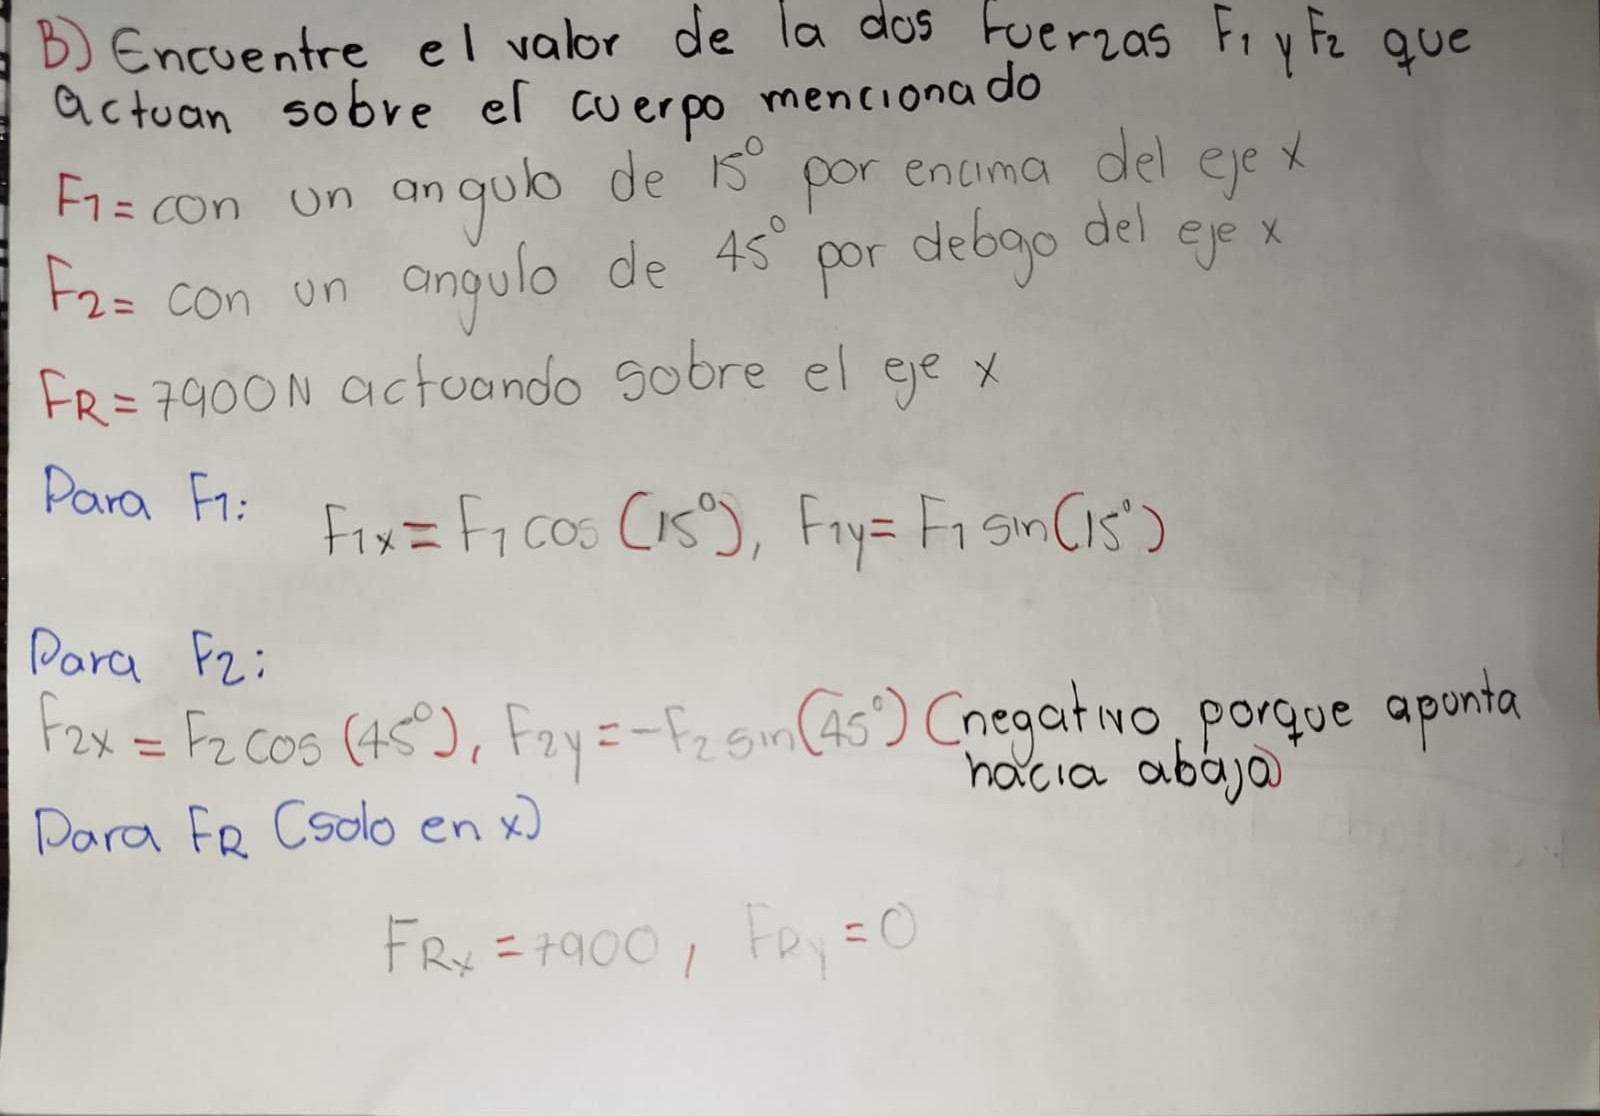 B) Encuentre el valor de la dos Fuerzas F1 y F2 que
actuan sobre el cuerpo mencionado
F1= con un angulo de 15° por encima del eje x
F2= con un angulo de 45° por debajo del eje x
FR= 7900N actuando sobre el eje x
Para F1:
F1x = F1 cos (15°), F1y= F1 sin(15°)
Para F2:
F2x = F2 cos (45°), F2y = -F2 sin(45°) (negativo porque apunta
hacia abajo)
Para FR (solo en x)
FRx = 7900, FRy = 0